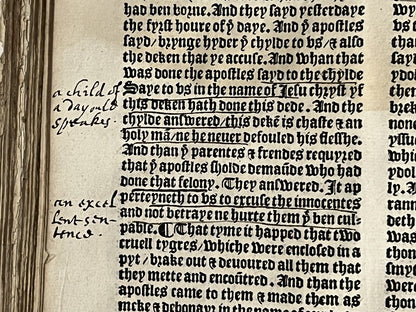 had ben borne. And they sayd yesterdaye
the fyrst houre of yͤ daye. And yͤ apostles
sayd/brynge hyder yͤ chylde to vs/⁊ also
the deken that ye accuse. And whan that
was done the apostles sayd to the chylde
a child of
a day ould
speakes.
Saye to vs in the name of Jesu chryst yf
this deken hath done this dede. And the
chylde answered/this dekē is chaste ⁊ an
holy mā/ne he neuer defouled his flesshe.
And than yͤ parentes ⁊ frendes requyred
that yͤ apostles sholde demaūde who had
done that felony. They answered. It ap
an excel
lent sen-
tence.
perteyneth to vs to excuse the innocentes
and not betraye ne hurte them yͭ ben cul-
pable. ¶ That tyme it happed that two
cruell tygres/whiche were enclosed in a
pyt/brake out ⁊ deuoured all them that
they mette and encoūtred. And than the
apostles came to them ⁊ made them as